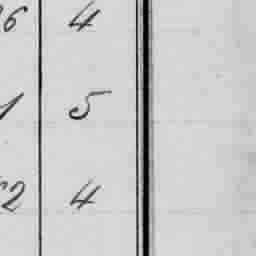 6 4
1 5
2 4